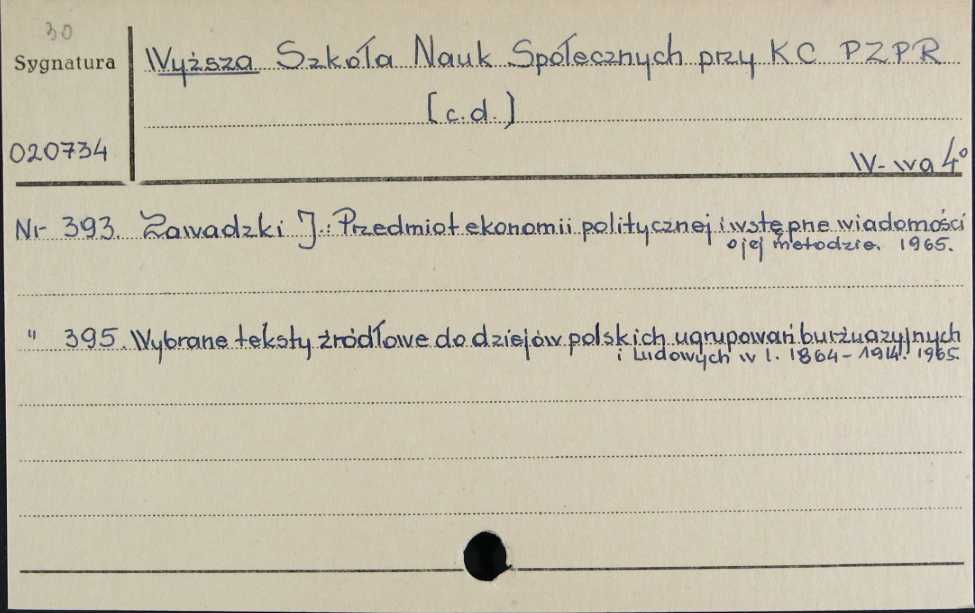 30
Sygnatura
Wyższa Szkoła Nauk Społecznych przy KC PZPR
[c.d.]
020734
W-wa 4°
Nr 393. Zawadzki J.: Przedmiot ekonomii politycznej i wstępne wiadomości
o jej metodzie. 1965.
" 395. Wybrane teksty źródłowe do dziejów polskich ugrupowań burżuazyjnych
i ludowych w l. 1864-1914. 1965.